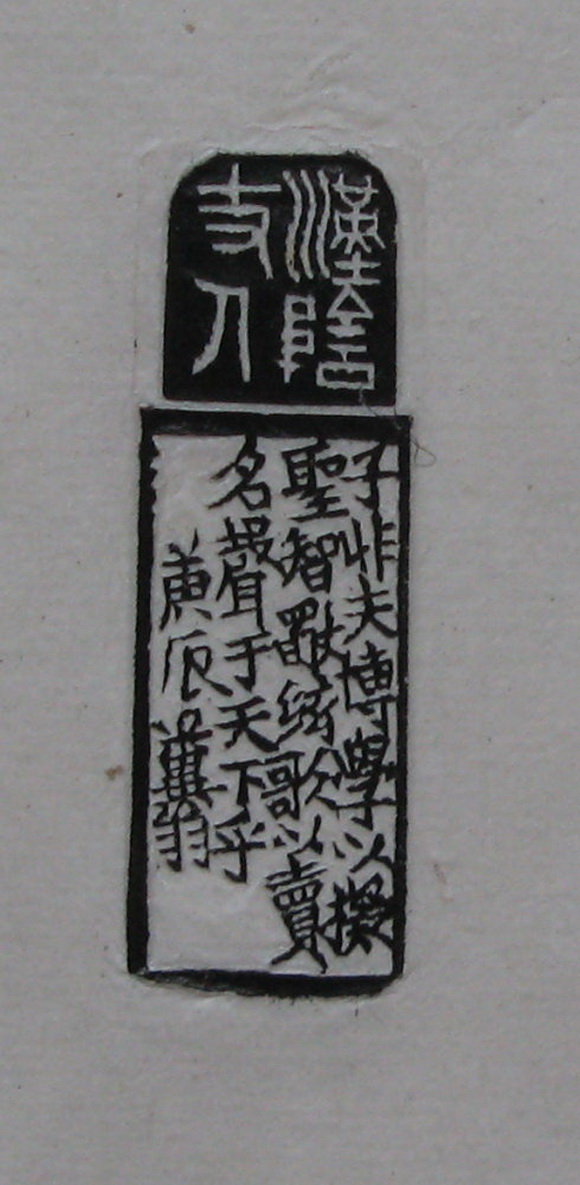 漢陰
丈人
子非夫博學以擬
聖智絃歌以賣
名聲于天下乎
庚辰糞翁